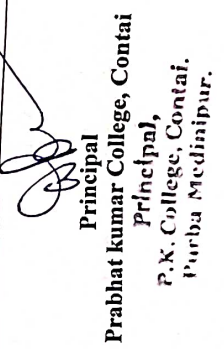 Principal
Prabhat kumar College, Contai
Principal,
P.K. College, Contai.
Purba Medinipur.